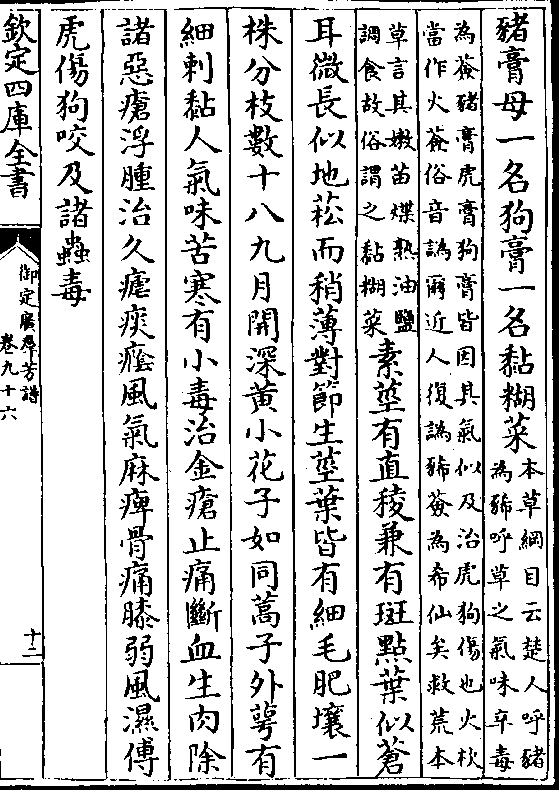 豬膏母一名狗膏一名黏糊菜
本草綱目云楚人呼豬
為豨呼草之氣味辛毒
為薟豬膏虎膏狗膏皆因其氣似及治虎狗傷也火杴
當作火薟俗音訛爾近人復訛豨薟為希仙矣救荒本
草言其嫩苗煠熟油鹽
調食故俗謂之黏糊菜
素莖有直稜兼有斑點葉似蒼
耳微長似地菘而稍薄對節生莖葉皆有細毛肥壤一
株分枝數十八九月開深黃小花子如同蒿子外萼有
細刺黏人氣味苦寒有小毒治金瘡止痛斷血生肉除
諸惡瘡浮腫治久瘧痰癊風氣麻痺骨痛膝弱風濕傅
虎傷狗咬及諸蟲毒
欽定四庫全書
御定廣羣芳譜
卷九十六
十二